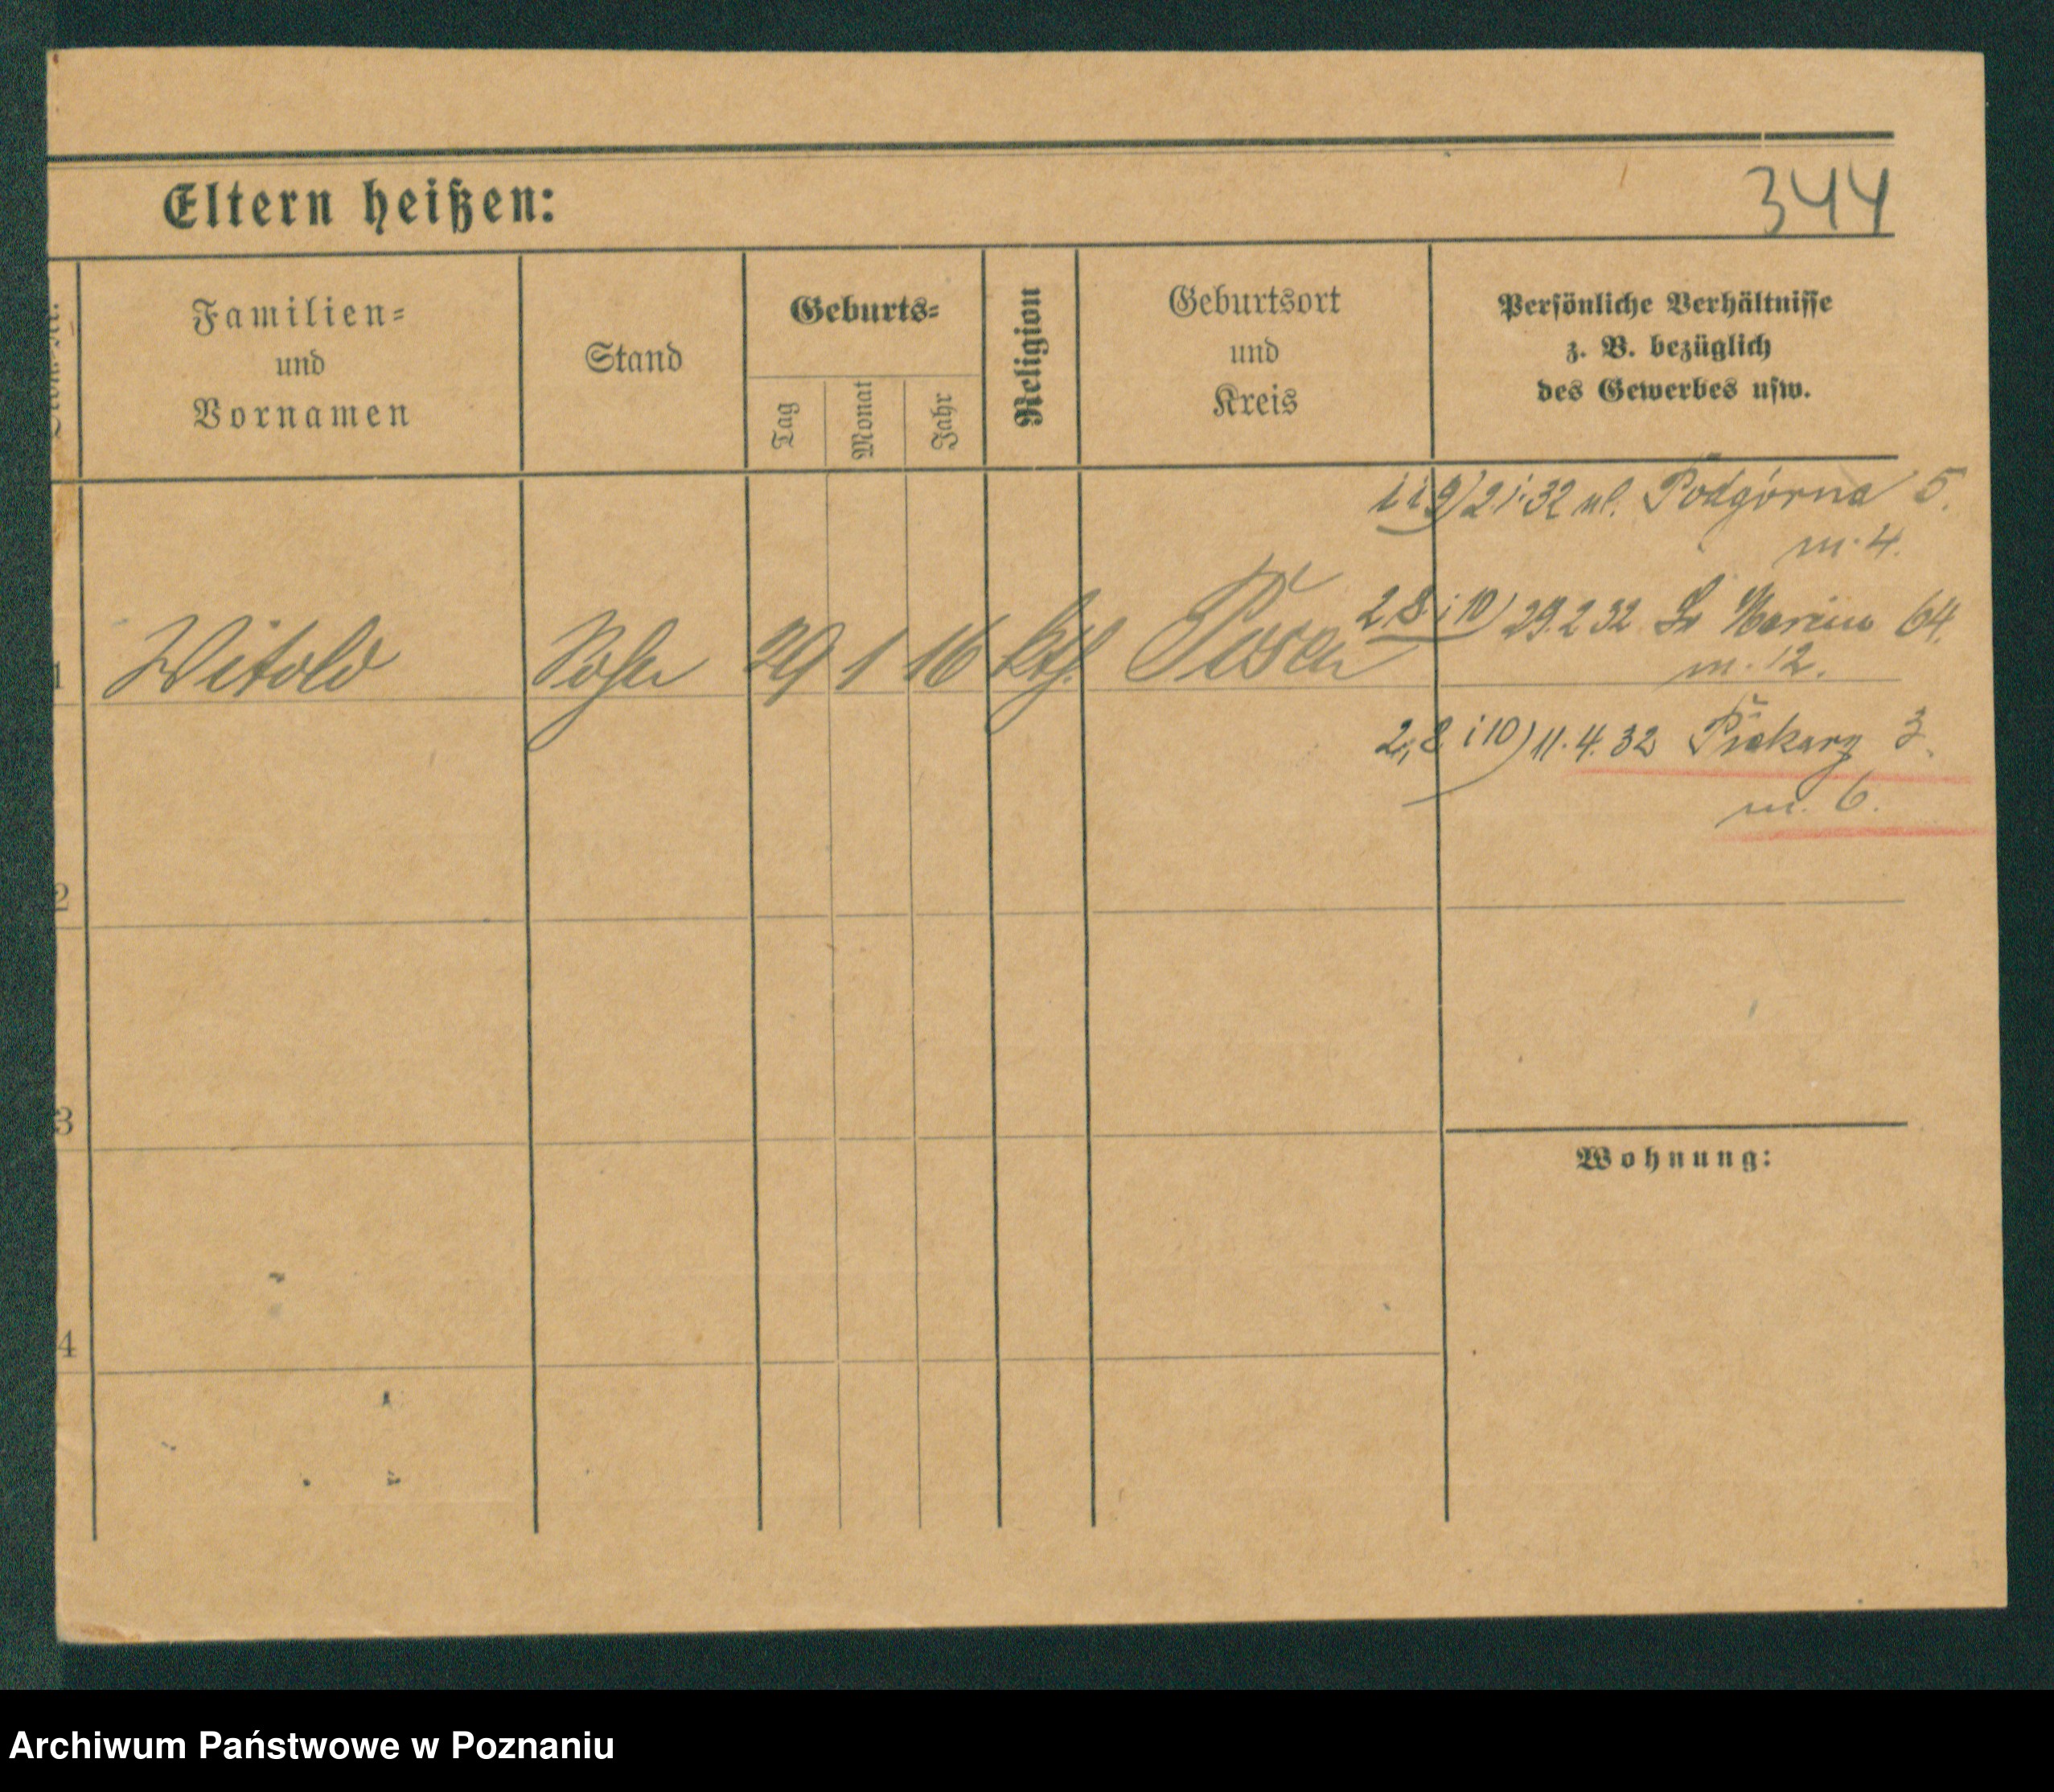 Eltern heißen:
344
Familien=
und
Vornamen
Stand
Geburts=
Tag
Monat
Jahr
Religion
Geburtsort
und
Kreis
Persönliche Verhältnisse
z. B. bezüglich
des Gewerbes usw.
9) 2.1.32 ul. Podgórna 5.
m. 4.
1 Witold Sohn 29 1 16 kth. Posen
2,8 i 10) 29.2.32 Św Marcin 64.
m. 12.
2,8 i 10) 11.4.32 Piekary 3.
m. 6.
2
3
Wohnung:
4
Archiwum Państwowe w Poznaniu